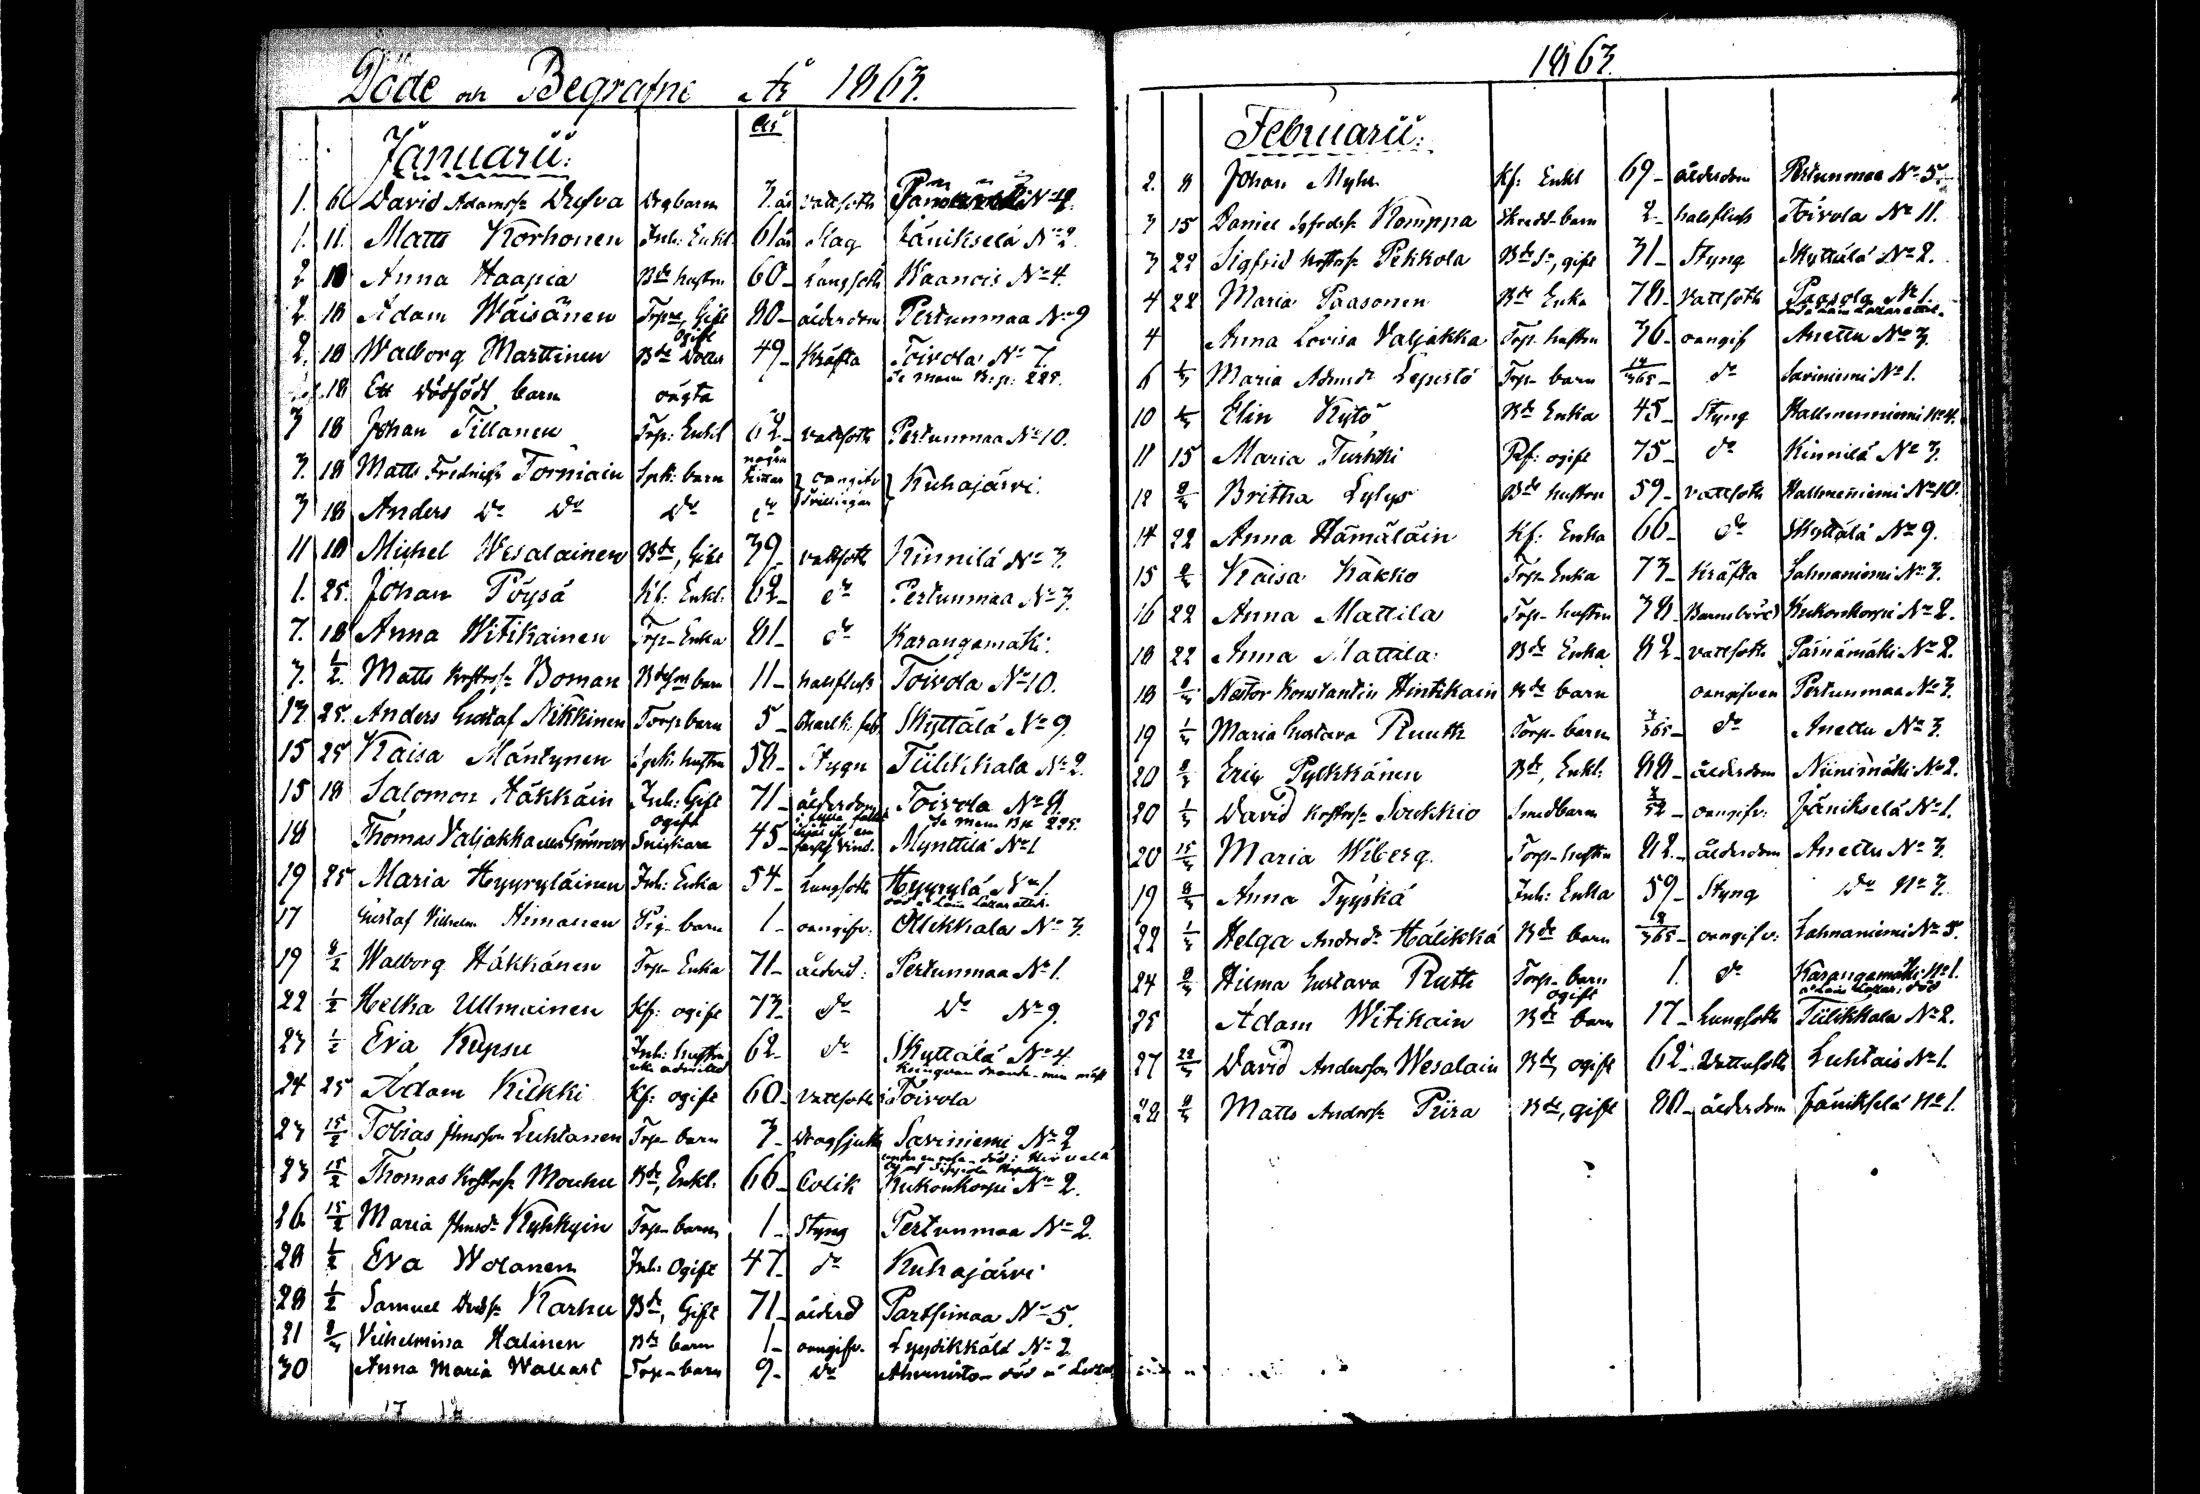 Döde och Begrafne År 1863.
Januarii:
År
1. 6 David Adamss: Drefva Drg barn 3 år vattsoth No 4.
1. 11. Matts Korhonen Inh: Enkl. 61 år slag Jänikselä No 2.
2 18 Anna Haapia Bde hustru 60 Lungsoth Waanois No 4.
2. 18 Adam Wäisänen Torpre, Gift 80 ålderdom Pertunmaa No 9
2. 18 Walborg Marttinen ogift Bde Dotter 49 Kräfta Toivola No 7.
18 Ett dödfödt barn oägta se mem B. p: 225.
3 18 Johan Tillanen Trp: Enkl 62 vattsoth Pertunmaa No 10.
3. 18 Matts Fredrikss Torniain Spk: barn några timar oangifv Kuhajärvi.
3 18 Anders Do Do Do do Tvillingar
11 18 Michel Wesalainen Bde, Gift 39 vattsoth Kinnilä No 3.
1. 25. Johan Pöysä Kf: Enkl: 62 do Pertunmaa No 3.
7. 18 Anna Witikainen Trp Enka 81 do Karangamäki.
3. 1/2. Matts Krstfrss: Boman Bdeson barn 11 halsfluss Toivola No 10.
13. 25. Anders Gustaf Nikkinen Torp barn 5 Charlk: feb. Skyttälä No 9.
15 25 Kaisa Mäntynen Spk: hustru 58 Stygn Tiilikkala No 2.
15 18 Salomon Häkkäin Inh: Gift 71 ålderdom Toivola No 9.
18 Thomas Valjakka eller ogift Snickare 45 Mynttilä No 1
19 25 Maria Hyyryläinen Inh: Enka 54 Lungsoth Hyyrylä No 1.
17 Gustaf Vilhelm Himanen Pig barn 1 oangifv: Ollikkala No 3.
19 8/2 Walborg Häkkänen Trp Enka 71 ålderd: Pertunmaa No 1.
22 1/2 Helka Ullmainen Kf: ogift 73 do Do No 9.
23 1/2 Eva Kupsu Inh: hustru 62 do Skyttälä No 4.
24 25 Adam Kukki Kf: ogift 60 vattsoth i Toivola
23 15/2 Tobias Johnsson Luhtanen Trp barn 3 Dragsjuka Saviniemi No 2
23 15/2 Thomas Krstfrss: Mouhu Bde, Enkl: 66 Colik Kukonkorpi No 2.
26 15/2 Maria Johnsdr Kyhkyin Trp barn 1 Styng Pertunmaa No 2.
28 1/2 Eva Wolanen Inh: Ogift 47 do Kuhajärvi
28 1/2 Samuel Davdss: Karhu Bde, Gift 71 ålderd Partsimaa No 5.
21 8/3 Vilhelmina Halinen Bde barn 1 oangifv. Lyytikkälä No 2
30 Anna Maria Wallast Trp barn 9 Do död å
1863.
Februarii:
2. 8 Johan Myhr Kf: Enkl 69 ålderdom Pertunmaa No 5.
3 15 Daniel Sigfredss: Komppa Skredd barn 2 halsfluss Toivola No 11.
3 22 Sigfrid Krstfrss: Pekkola Bde Sn, gift 31 Styng Skyttälä No 2.
4 22 Maria Paasonen Bde Enka 78 vattsoth Paasola No 1.
4 Anna Lovisa Valjakka Trp hustru 36 oangif Anettu No 3.
6 1/3 Maria Admsdr Lepistö Trp barn 14/365 do Saviniemi No 1.
10 1/3 Elin Kytö Bde Enka 45 Styng Hallmenniemi No 4.
11 15 Maria Turkki Pf: ogift 75 do Kinnilä No 3.
12 8/3 Britha Lylys Bde hustru 59 vattsoth Hallmenniemi No 10.
14 22 Anna Hämäläin Kf: Enka 66 do Skyttälä No 9.
15 8/3 Kaisa Kakko Trp Enka 73 Kräfta Lahnaniemi No 3.
16 22 Anna Mattila Trp hustru 38 Barnsbörd Kukonkorpi No 2.
18 22 Anna Mattila: Bde Enka 82 vattsoth Päinämäki No 2.
18 8/3 Nestor Konstantin Hintikain Bde barn oangifven Pertunmaa No 3.
19 1/3 Maria Gustava Ruuth Torp barn 3/365 do Anettu No 3.
20 8/3 Eric Pylkkänen Bde, Enkl: 88 ålderdom Niinimäki No 2.
20 1/3 David Krstfrss: Soukkio Smed barn 3/52 oangifv: Jänikselä No 1.
20 15/3 Maria Wiberg. Torp hustru 82 ålderdom Anettu No 3.
19 8/3 Anna Tyyskä Inh: Enka 59 Styng Do No 3.
22 1/3 Helga Andrsdr Hälikkä Bde barn 8/365 oangifv: Lahnaniemi No 5.
24 8/3 Hilma Gustava Ruth Torp barn 1. do Karangamäki No 1.
25 Adam Witikain ogift Bde barn 17 Lungsoth Tiilikkala No 2.
27 22/3 David Andersson Wesalain Bde, ogift 62 Vattusoth Luhtais No 1.
28 8/3 Matts Andrss: Piira Bde, gift 80 ålderdom Jänikselä No 1.